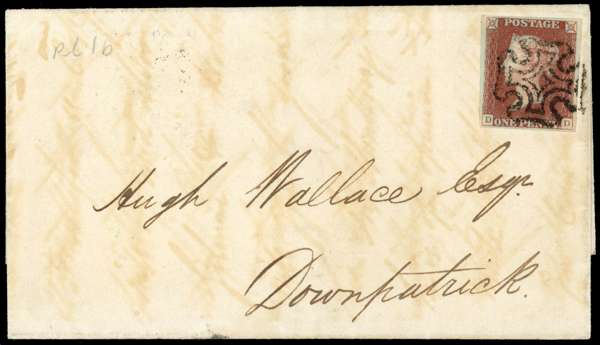 pl 1b
POSTAGE
D ONE PENNY D
Hugh Wallace Esqr.
Downpatrick.